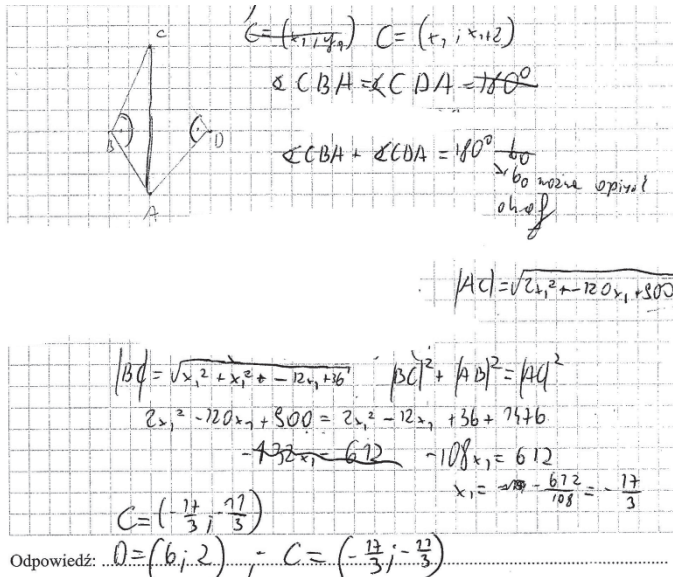 C
G = (x₁; y₁) C = (x₁; x₁+2)
∢CBA = ∢CDA = 180°
B D
∢CBA + ∢CDA = 180° bo
bo można opisać
A
|AC| = √2x₁² + -120x₁ + 900
|BC| = √x₁² + x₁² + -12x₁ + 36 |BC|² + |AB|² = |AC|²
2x₁² - 120x₁ + 900 = 2x₁² - 12x₁ + 36 + 1476
-432x₁ = 612 -108x₁ = 612
x₁ = - 612/108 = - 17/3
C = (-17/3; -11/3)
Odpowiedź: D = (6; 2) ; C = (-17/3; -11/3)